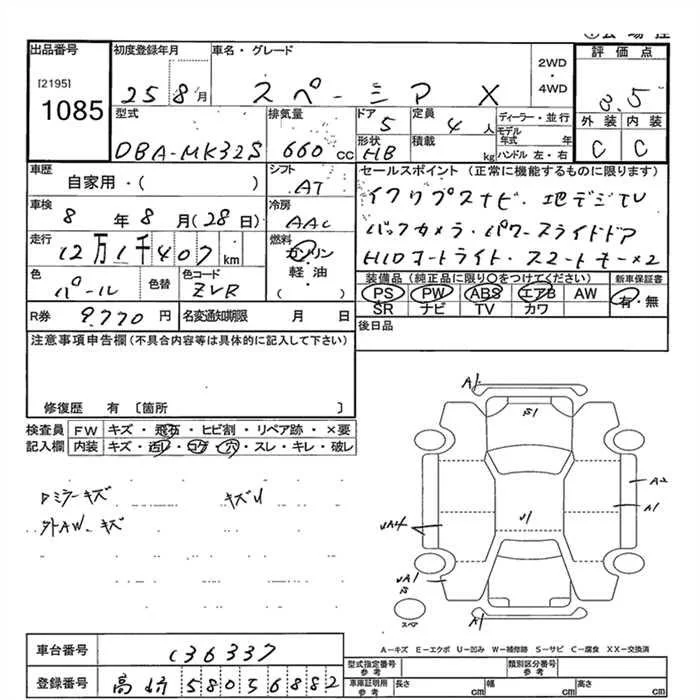 出品番号 初度登録年月 車名・グレード 2WD・4WD 評価点
[2195] 1085 25 8月 スペーシア X 3.5
型式 排気量 ドア 5 定員 4人 ディーラー・並行 外装 内装
DBA-MK32S 660cc 形状 HB 積載 kg モデル年式 年 ハンドル 左・右 C C
車歴 自家用・( ) シフト AT セールスポイント (正常に機能するものに限ります)
車検 8年8月(28日) 冷房 AAC
走行 12万1千407km 燃料 ガソリン 軽油・( ) バックカメラ・パワースライドドア
色 パール 色替 色コード ZVR 装備品(純正品に限り○をつけてください) 新車保証書
PS PW ABS エアB AW 有・無
SR ナビ TV カワ
R券 9,770円 名変通知期限 月 日 後日品
注意事項申告欄(不具合内容等は具体的に記入して下さい)
修復歴 有〔箇所 〕
検査員記入欄 FW キズ・飛石・ヒビ割・リペア跡・×要
内装 キズ・汚レ・コゲ・穴・スレ・キレ・破レ
ロミラーキズ キズU
外AW、キズ
A1
S1
A2
A1
U1
UA4
UA1
S
スペア
A1
A-キズ E-エクボ U-凹み W-補修跡 S-サビ C-腐食 XX-交換済
車台番号 136337
型式指定番号 参考 類別区分番号 参考
登録番号 高崎 580 5 6882
車庫証明用 参考 長さ cm 幅 cm 高さ cm